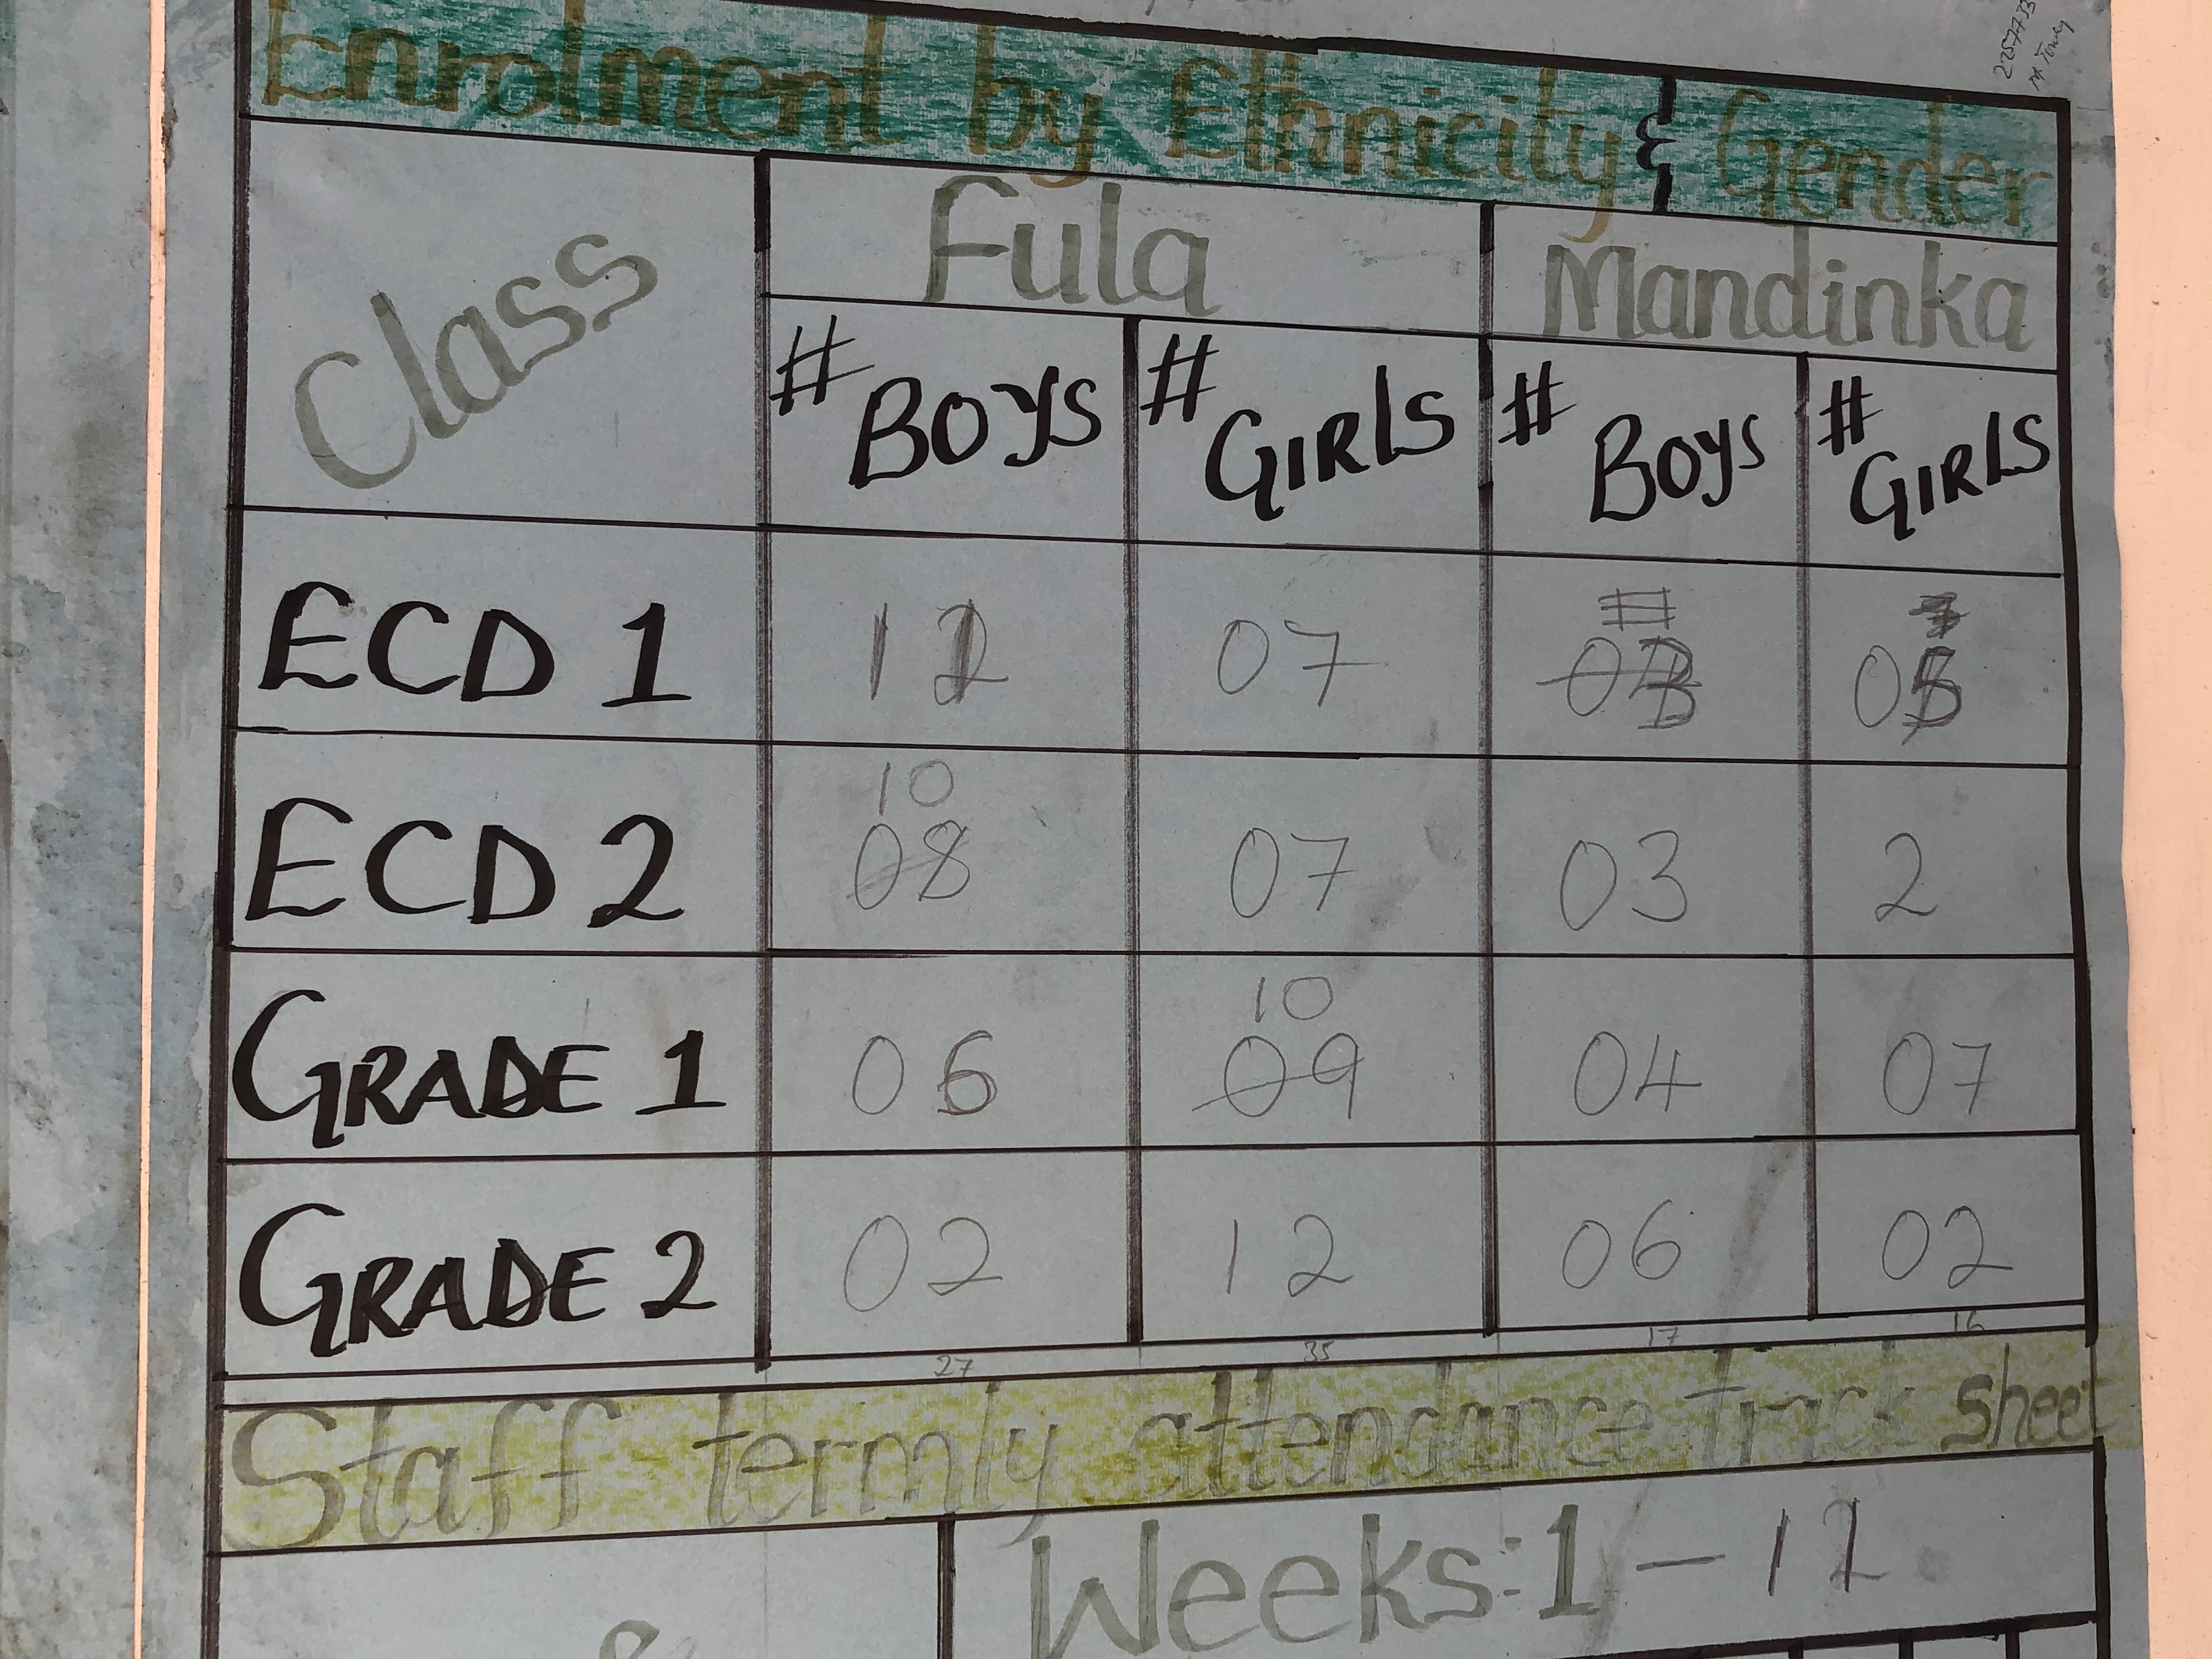 Enrolment by Ethnicity & Gender
Class Fula Mandinka
# BOYS # GIRLS # BOYS # GIRLS
ECD 1 12 07 05
10
ECD 2 08 07 03 2
10
GRADE 1 06 09 04 07
GRADE 2 02 12 06 02
27 35 17 16
Staff termly attendance track sheet
Weeks: 1 - 12